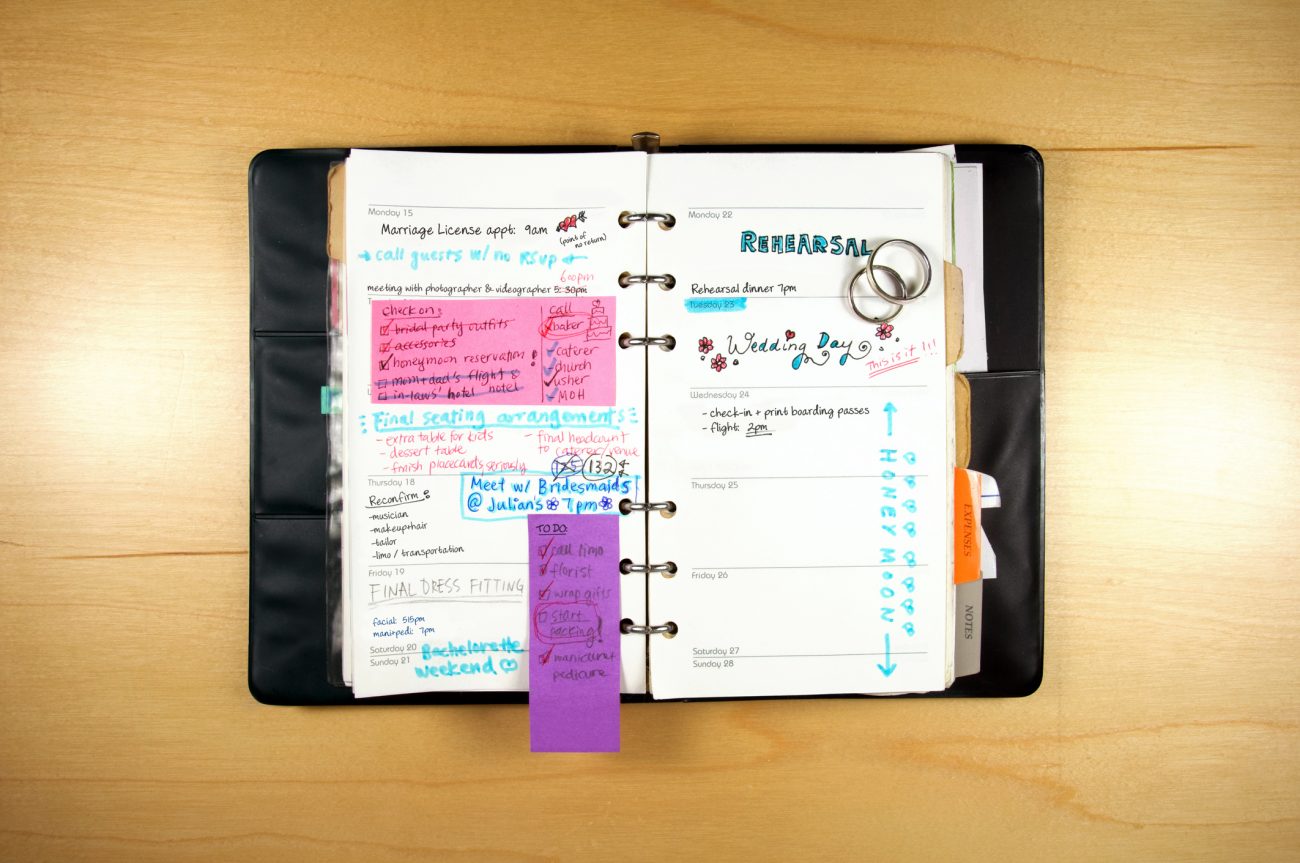 Monday 15
Marriage License appt: 9am
(point of
no return)
call guests w/ no RSVP
6:00pm
meeting with photographer & videographer 5:30pm
check on:
bridal party outfits
accessories
honeymoon reservation!
mom+dad's flight &
in-laws' hotel hotel
call
baker
caterer
church
usher
MOH
Final seating arrangements
- extra table for kids
- dessert table
- finish placecards, seriously
- final headcount
to caterer/venue
125 132
Thursday 18
Meet w/ Bridesmaids
@ Julian's 7pm
Reconfirm:
-musician
-makeup+hair
-tailor
-limo / transportation
Friday 19
FINAL DRESS FITTING
facial: 515pm
mani+pedi: 7pm
Saturday 20
Sunday 21
Bachelorette
Weekend
TO DO:
call limo
florist
wrap gifts
start
packing!
manicure+
pedicure
Monday 22
REHEARSAL
Rehearsal dinner 7pm
Tuesday 23
Wedding Day
This is it!!!
Wednesday 24
- check-in + print boarding passes
- flight: 2pm
HONEYMOON
Thursday 25
Friday 26
Saturday 27
Sunday 28
EXPENSES
NOTES